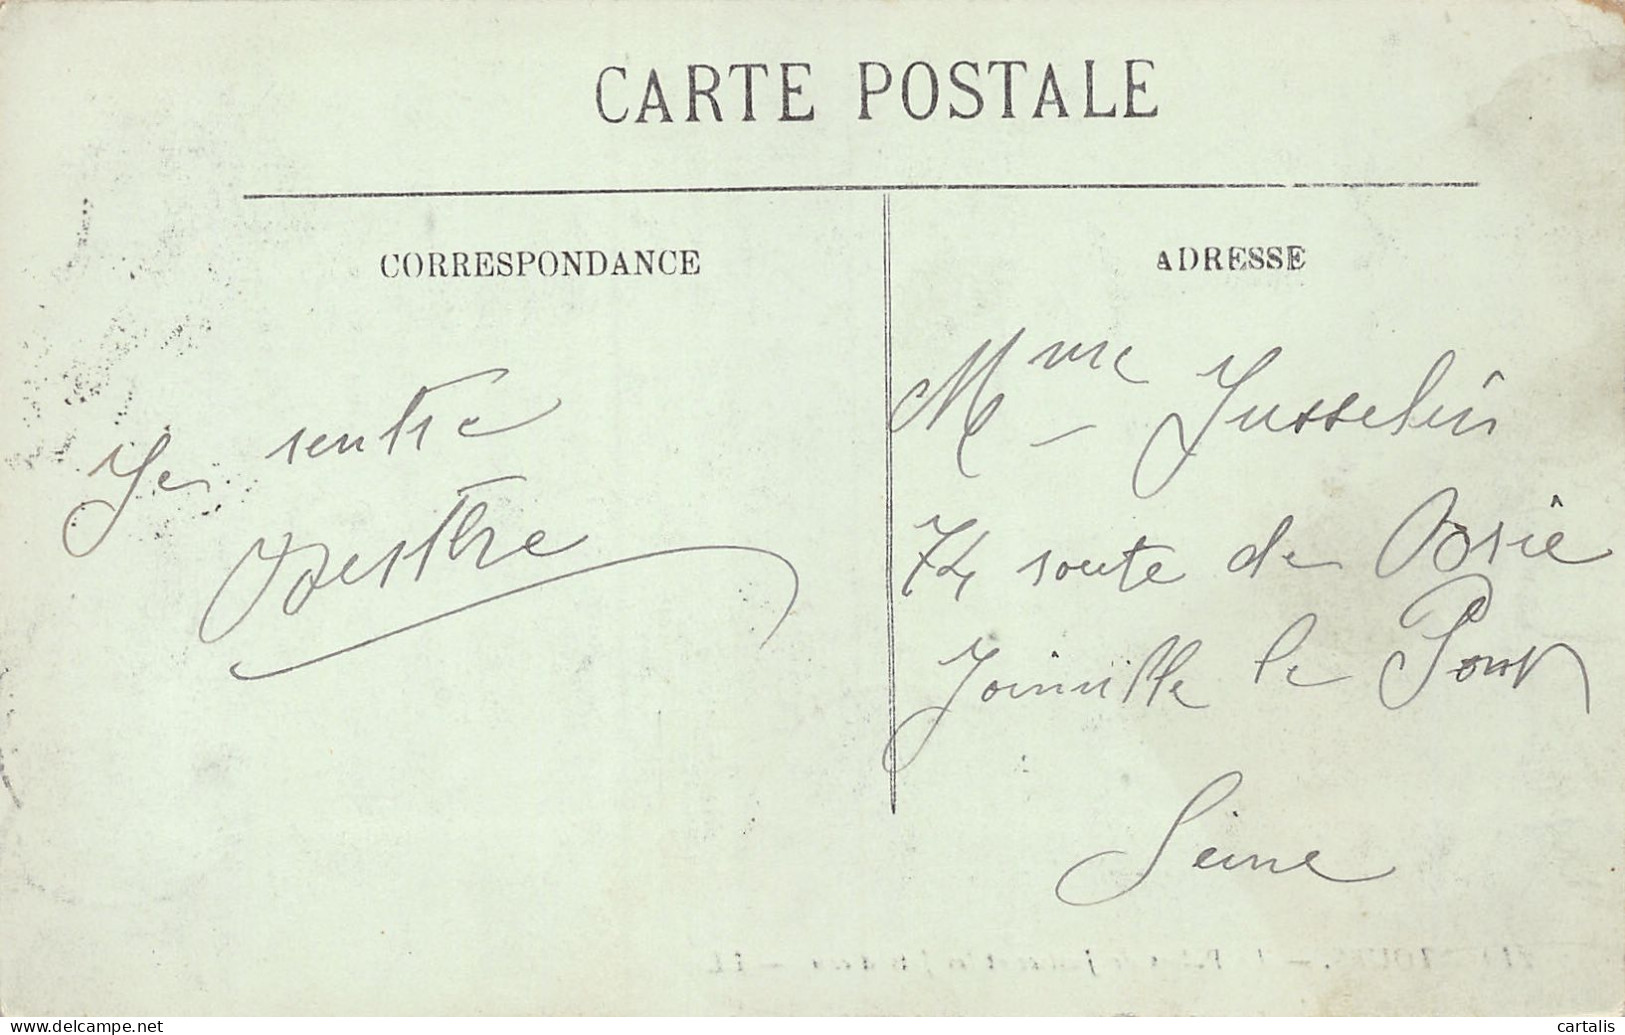 CARTE POSTALE
CORRESPONDANCE
Je rentre
ADRESSE
Mme Jusselin
74 route de Brie
Joinville le Pont
Seine
cartalis